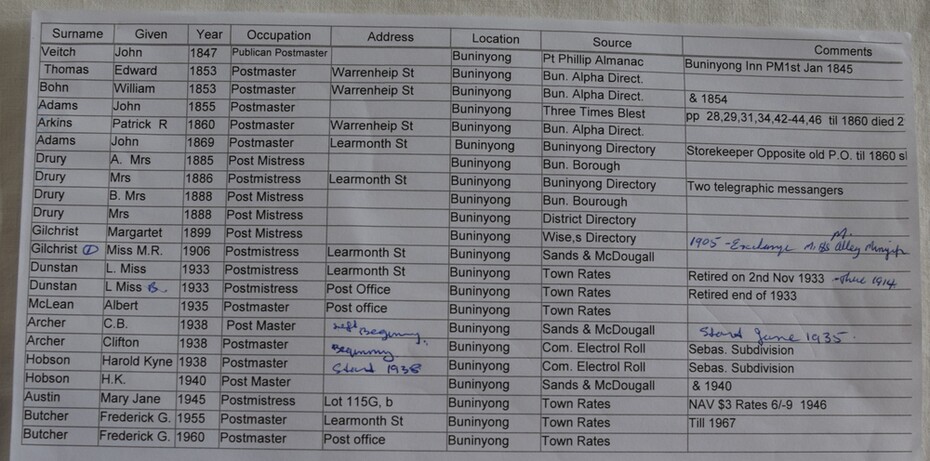 Surname Given Year Occupation Address Location Source Comments
Veitch John 1847 Publican Postmaster Buninyong Pt Phillip Almanac Buninyong Inn PM1st Jan 1845
Thomas Edward 1853 Postmaster Warrenheip St Buninyong Bun. Alpha Direct.
Bohn William 1853 Postmaster Warrenheip St Buninyong Bun. Alpha Direct. & 1854
Adams John 1855 Postmaster Buninyong Three Times Blest pp 28,29,31,34,42-44,46 til 1860 died 2
Arkins Patrick R 1860 Postmaster Warrenheip St Buninyong Bun. Alpha Direct.
Adams John 1869 Postmaster Learmonth St Buninyong Buninyong Directory Storekeeper Opposite old P.O. til 1860 s
Drury A. Mrs 1885 Post Mistress Buninyong Bun. Borough
Drury Mrs 1886 Postmistress Learmonth St Buninyong Buninyong Directory Two telegraphic messangers
Drury B. Mrs 1888 Post Mistress Buninyong Bun. Bourough
Drury Mrs 1888 Post Mistress Buninyong District Directory
Gilchrist Margartet 1899 Post Mistress Buninyong Wise,s Directory
Gilchrist Miss M.R. 1906 Postmistress Learmonth St Buninyong Sands & McDougall 1905 - Exchange
Dunstan L. Miss 1933 Postmistress Learmonth St Buninyong Town Rates Retired on 2nd Nov 1933 1914
Dunstan L Miss B. 1933 Postmistress Post Office Buninyong Town Rates Retired end of 1933
McLean Albert 1935 Postmaster Post office Buninyong Town Rates
Archer C.B. 1938 Post Master left Beginning Buninyong Sands & McDougall Start June 1935
Archer Clifton 1938 Postmaster Beginning Buninyong Com. Electrol Roll Sebas. Subdivision
Hobson Harold Kyne 1938 Postmaster Start 1938 Buninyong Com. Electrol Roll Sebas. Subdivision
Hobson H.K. 1940 Post Master Buninyong Sands & McDougall & 1940
Austin Mary Jane 1945 Postmistress Lot 115G, b Buninyong Town Rates NAV $3 Rates 6/-9 1946
Butcher Frederick G. 1955 Postmaster Learmonth St Buninyong Town Rates Till 1967
Butcher Frederick G. 1960 Postmaster Post office Buninyong Town Rates